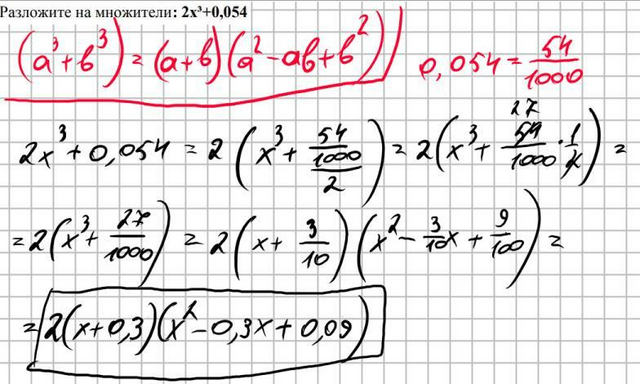 Разложите на множители: 2x³+0,054
(a³+b³)=(a+b)(a²-ab+b²) 0,054=54/1000
2x³+0,054 = 2(x³+54/1000/2) = 2(x³+54/1000·1/2) = 27
=2(x³+27/1000) = 2(x+3/10)(x²-3/10x+9/100) =
=2(x+0,3)(x²-0,3x+0,09)